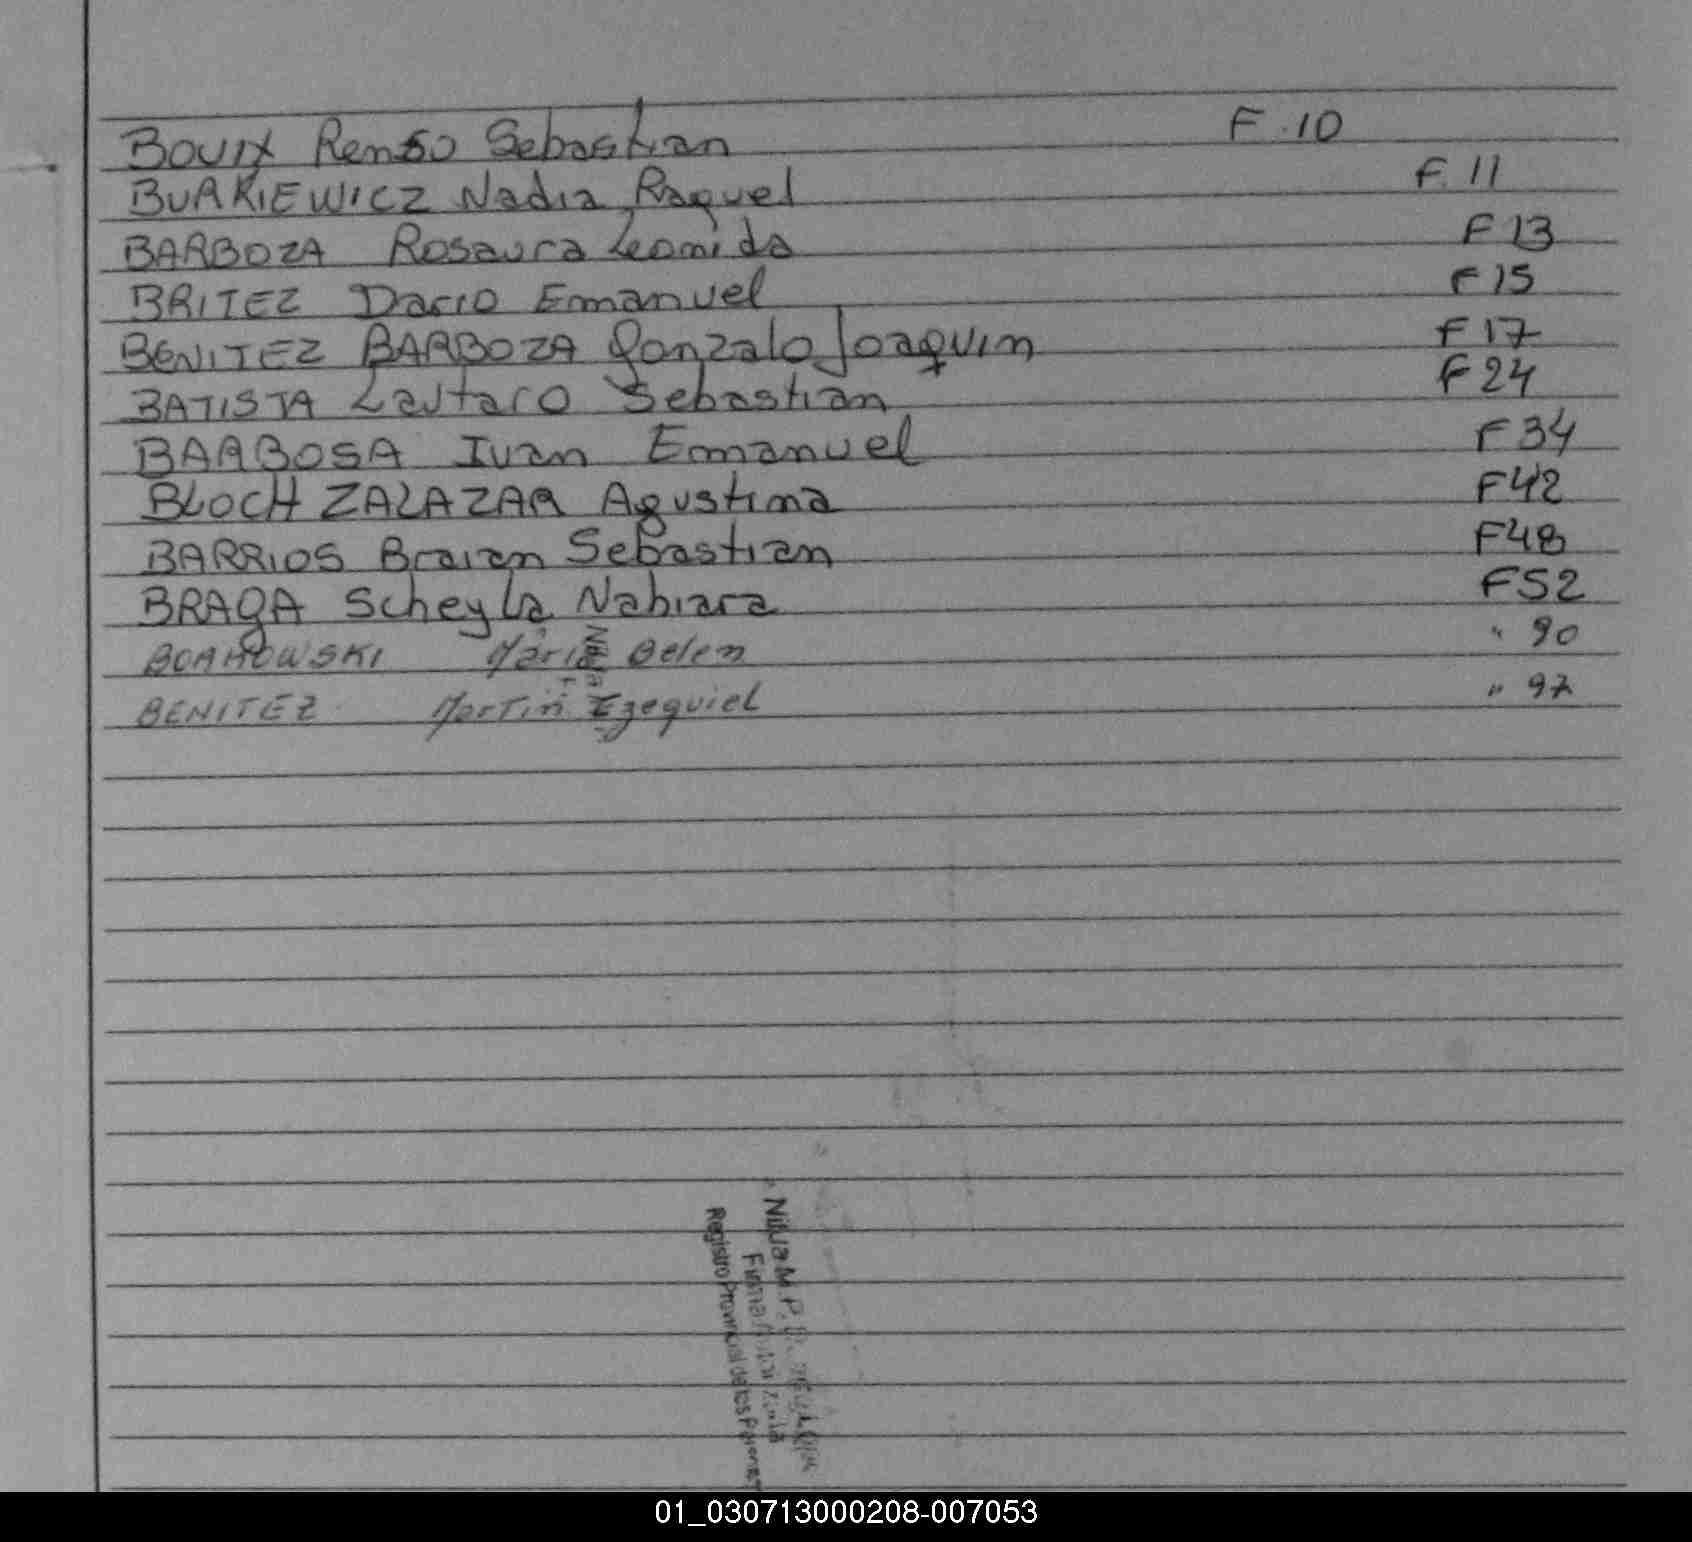 BOUIX Renso Sebastian F.10
BUARIEWICZ Nadia Raquel F.11
BARBOZA Rosaura Leonida F13
BRITEZ Dario Emanuel F15
BENITEZ BARBOZA Gonzalo Joaquin F17
BATISTA Lautaro Sebastian F24
BARBOSA Ivan Emanuel F34
BLOCH ZALAZAR Agustina F42
BARRIOS Braian Sebastian F48
BRAGA Scheyla Nahiara F52
María Belem " 90
BENITEZ Martín Ezequiel " 97
M. P.
Firma
Registro Provincial de las
01_030713000208-007053